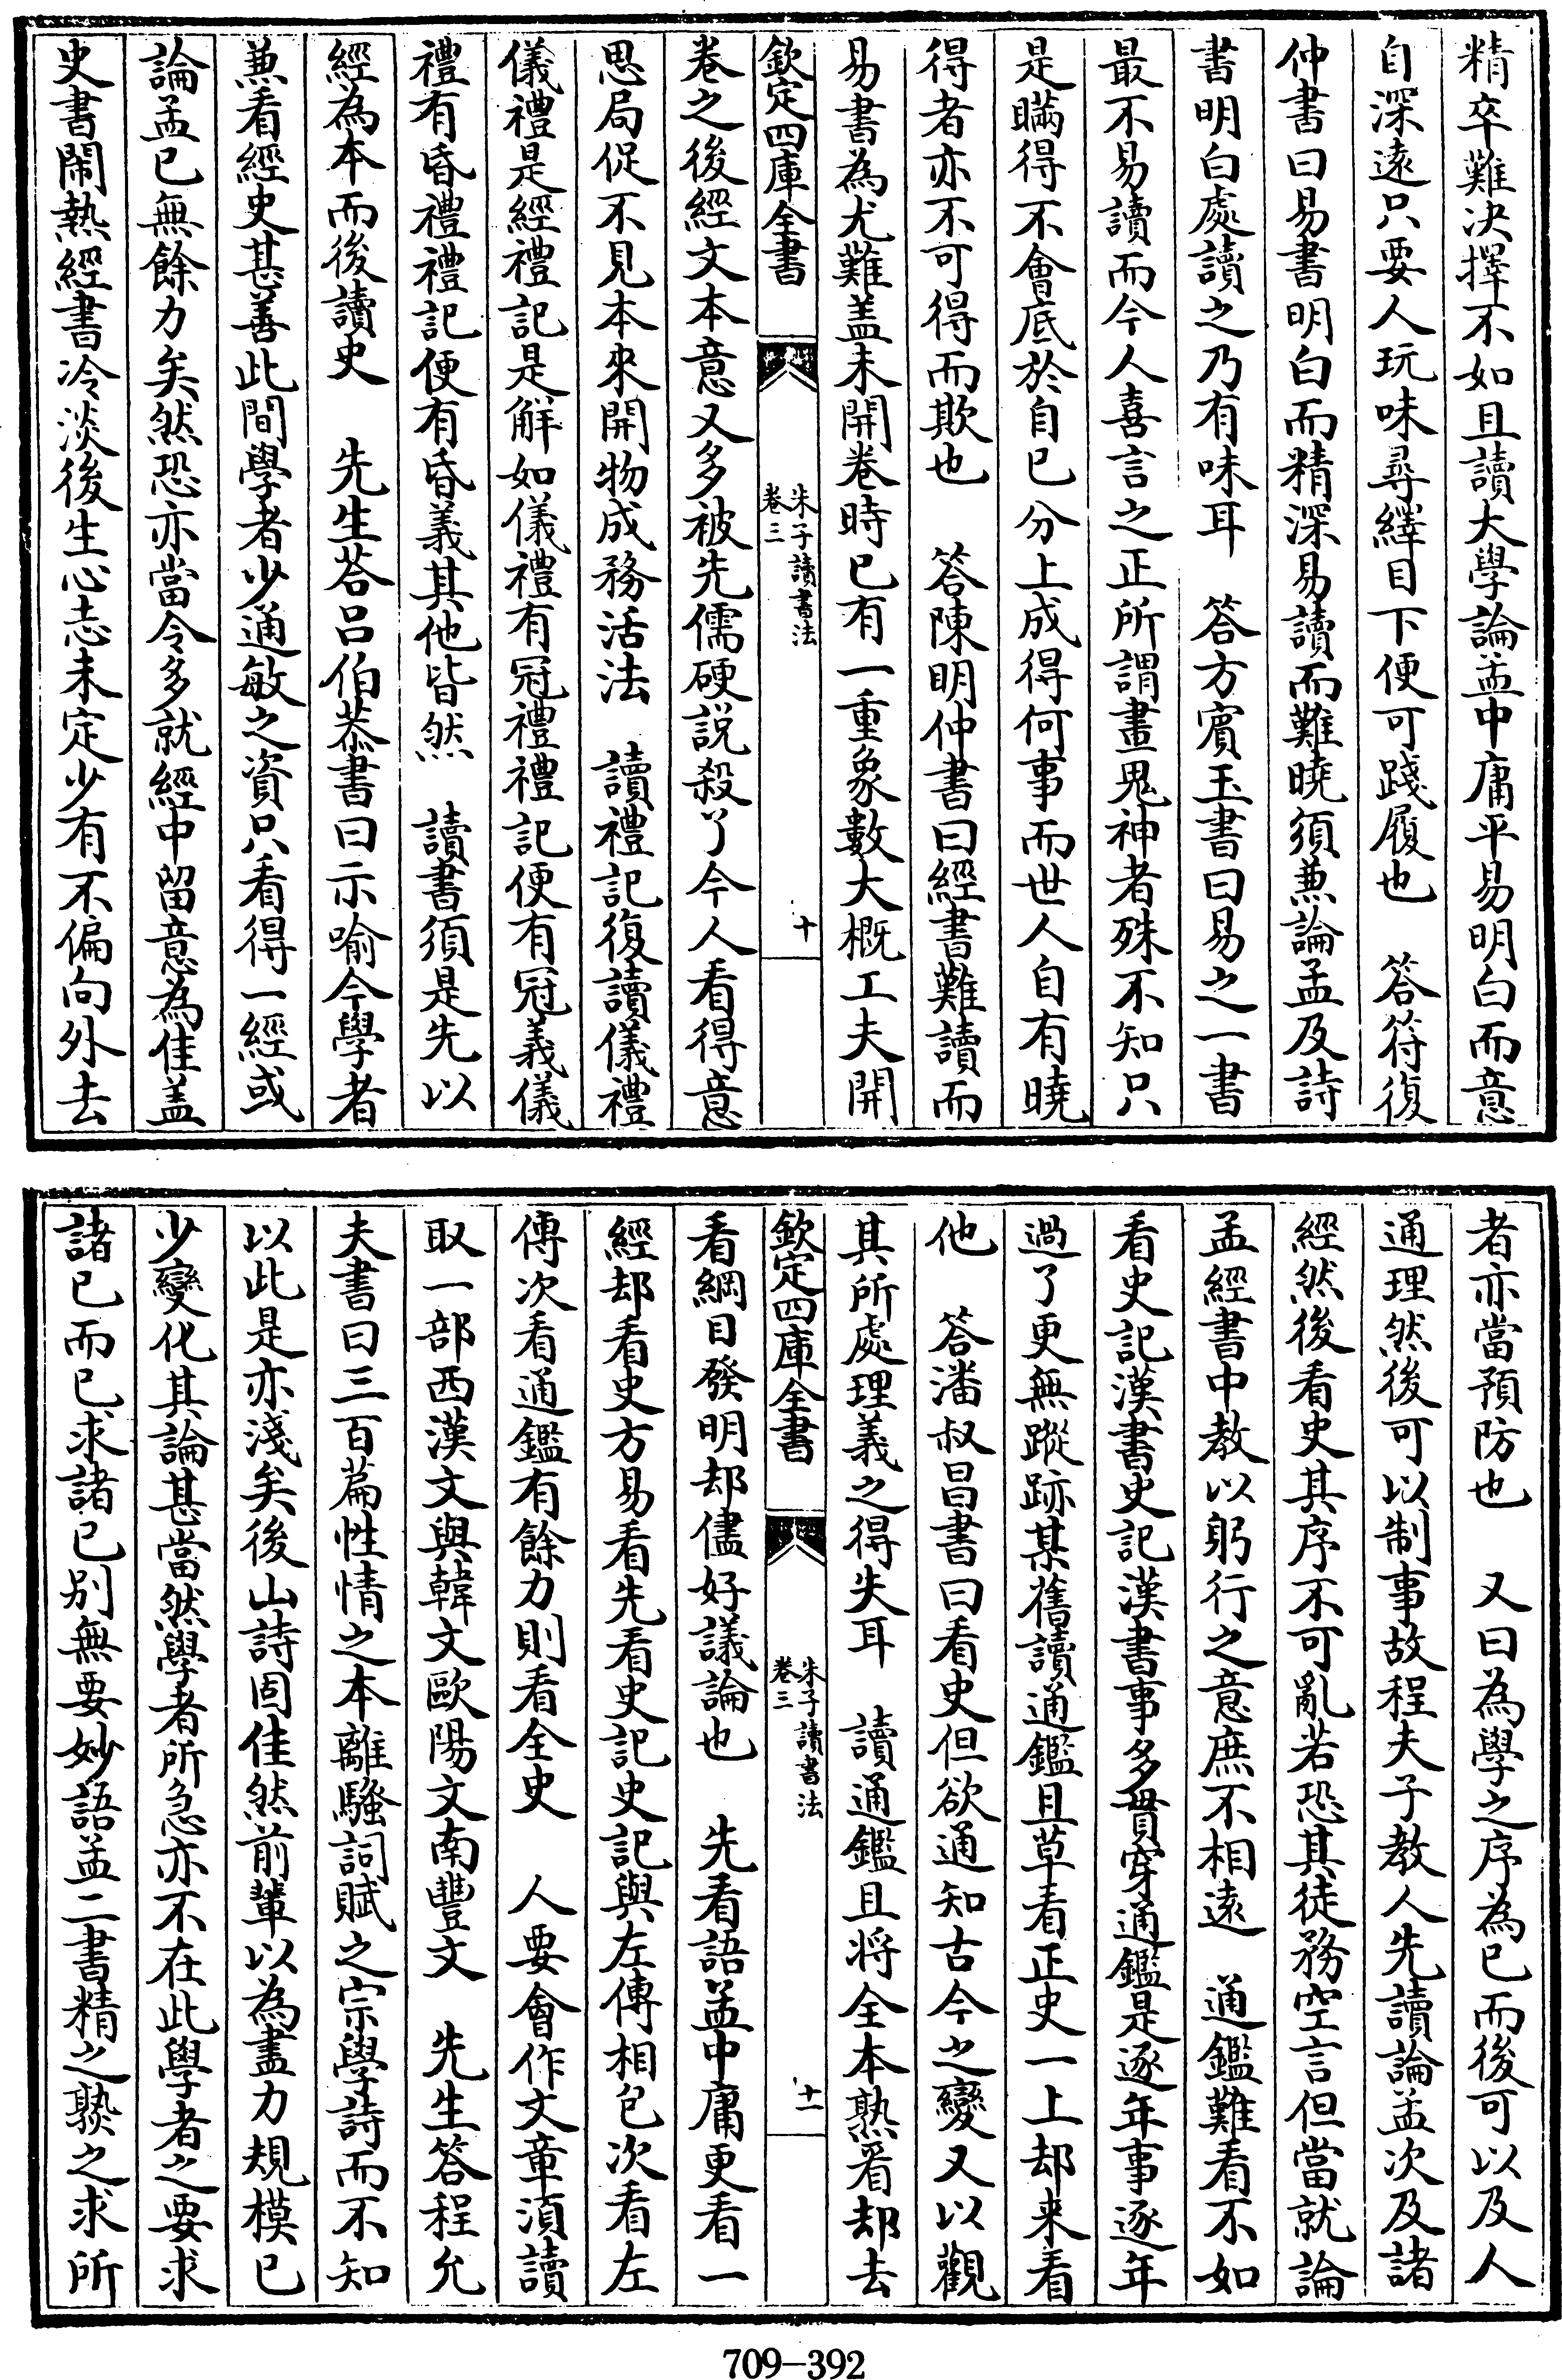 精卒難決擇不如且讀大學論孟中庸平易明白而意
自深遠只要人玩味尋繹目下便可踐履也　答符復
仲書曰易書明白而精深易讀而難曉須兼論孟及詩
書明白處讀之乃有味耳　答方賓王書曰易之一書
最不易讀而今人喜言之正所謂畫鬼神者殊不知只
是瞞得不會底於自己分上成得何事而世人自有曉
得者亦不可得而欺也　答陳明仲書曰經書難讀而
易書為尤難盖未開卷時已有一重象數大概工夫開
欽定四庫全書
朱子讀書法
卷三
十
卷之後經文本意又多被先儒硬說殺了今人看得意
思局促不見本來開物成務活法　讀禮記復讀儀禮
儀禮是經禮記是解如儀禮有冠禮禮記便有冠義儀
禮有昏禮禮記便有昏義其他皆然　讀書須是先以
經為本而後讀史　先生荅呂伯恭書曰示喻今學者
兼看經史甚善此間學者少通敏之資只看得一經或
論孟已無餘力矣然恐亦當令多就經中留意為佳盖
史書閙熱經書冷淡後生心志未定少有不偏向外去
者亦當預防也　又曰為學之序為已而後可以及人
通理然後可以制事故程夫子教人先讀論孟次及諸
經然後看史其序不可亂若恐其徒務空言但當就論
孟經書中教以躬行之意庶不相遠　通鑑難看不如
看史記漢書史記漢書事多貫穿通鑑是逐年事逐年
過了更無蹤跡某舊讀通鑑且草看正史一上却来看
他　答潘叔昌書曰看史但欲通知古今之變又以觀
其所處理義之得失耳　讀通鑑且將全本熟看却去
欽定四庫全書
朱子讀書法
卷三
十一
看綱目發明却儘好議論也　先看語孟中庸更看一
經却看史方易看先看史記史記與左傳相包次看左
傳次看通鑑有餘力則看全史　人要會作文章須讀
取一部西漢文與韓文歐陽文南豐文　先生答程允
夫書曰三百篇性情之本離騷詞賦之宗學詩而不知
以此是亦淺矣後山詩固佳然前輩以為盡力規模已
少變化其論甚當然學者所急亦不在此學者之要求
諸已而已求諸已别無要妙語孟二書精之熟之求所
709-392